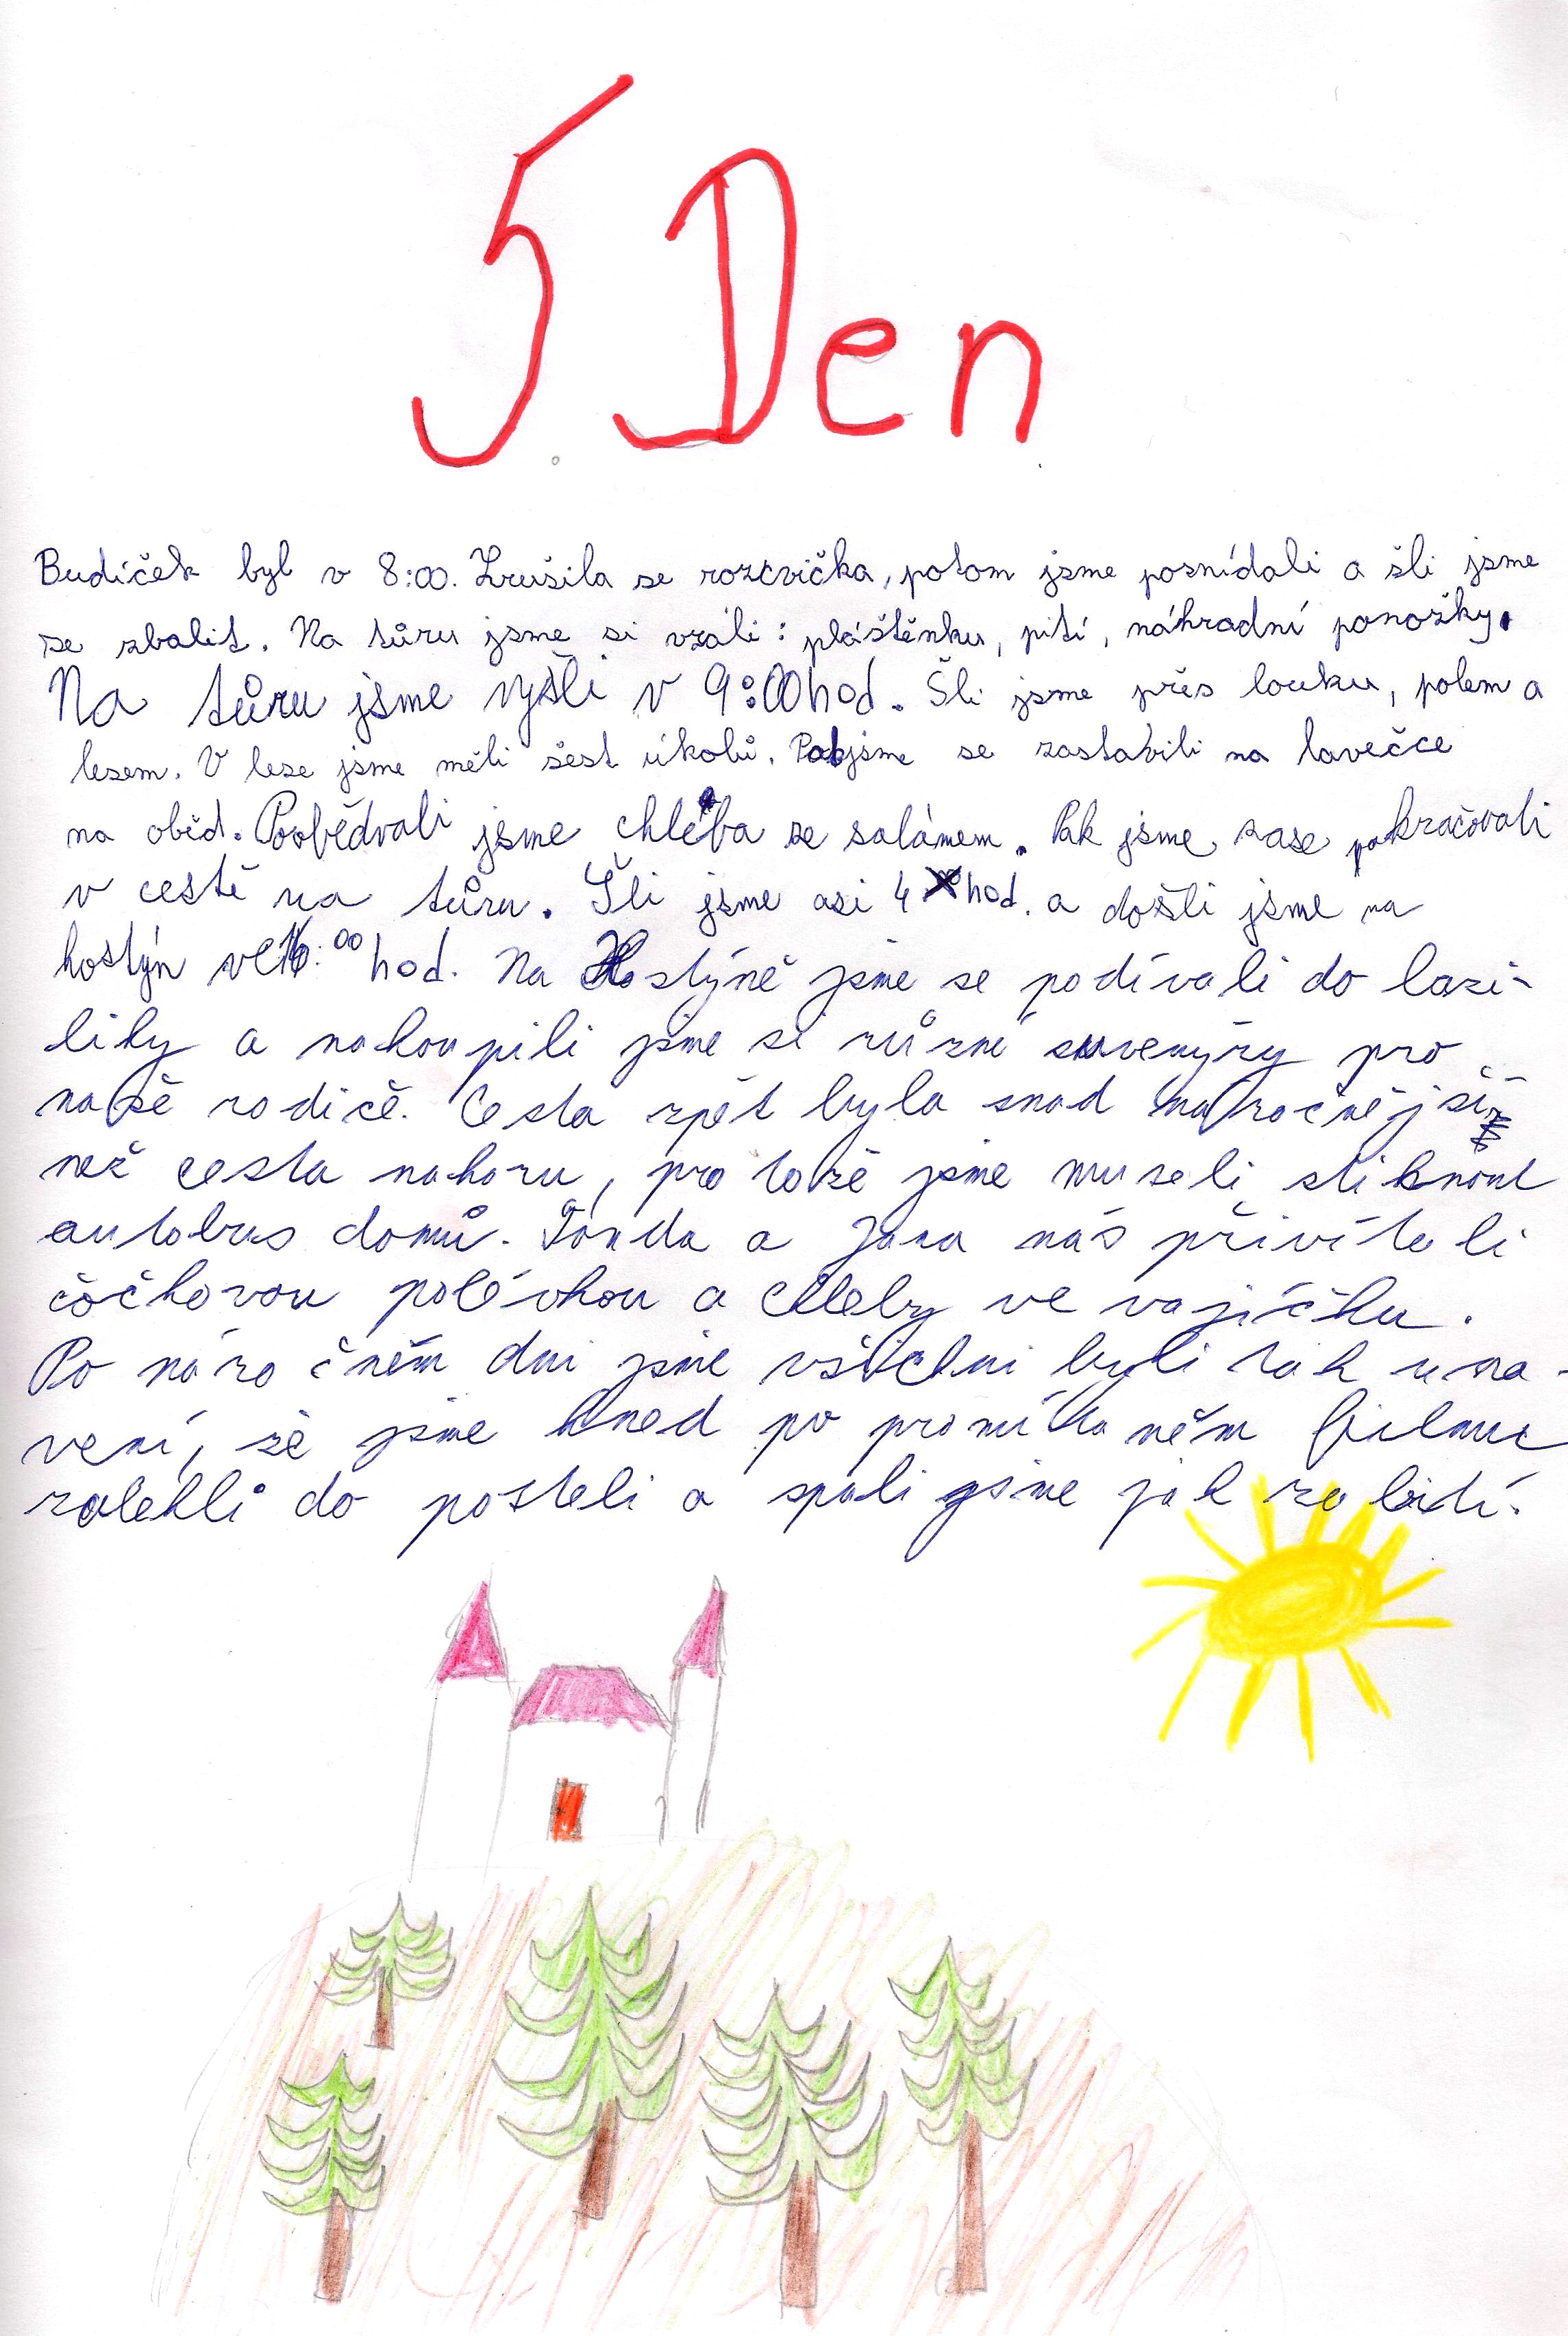 5. Den
Budíček byl v 8:00. Zrušila se rozcvička, potom jsme posnídali a šli jsme
se sbalit. Na tůru jsme si vzali: pláštěnku, pití, náhradní ponožky.
Na tůru jsme vyšli v 9:00 hod. Šli jsme přes louku, polem a
lesem. V lese jsme měli šest úkolů. Pak jsme se zastavili na lavečce
na oběd. Poobědvali jsme chléba se salámem. Pak jsme zase pokračovali
v cestě na tůru. Šli jsme asi 4 hod. a došli jsme na
hostýn ve 16:00 hod. Na Hostýně jsme se podívali do bazi-
liky a nakoupili jsme si různé suvenýry pro
naše rodiče. Cesta zpět byla snad náročnější
než cesta nahoru, protože jsme museli stihnout
autobus domů. Tonda a Jana nás přivítali
čočkovou polévkou a chleby ve vajíčku.
Po náročném dni jsme všichni byli tak una-
vení, že jsme hned po promítaném filmu
zalehli do postelí a spali jsme jak zabití.